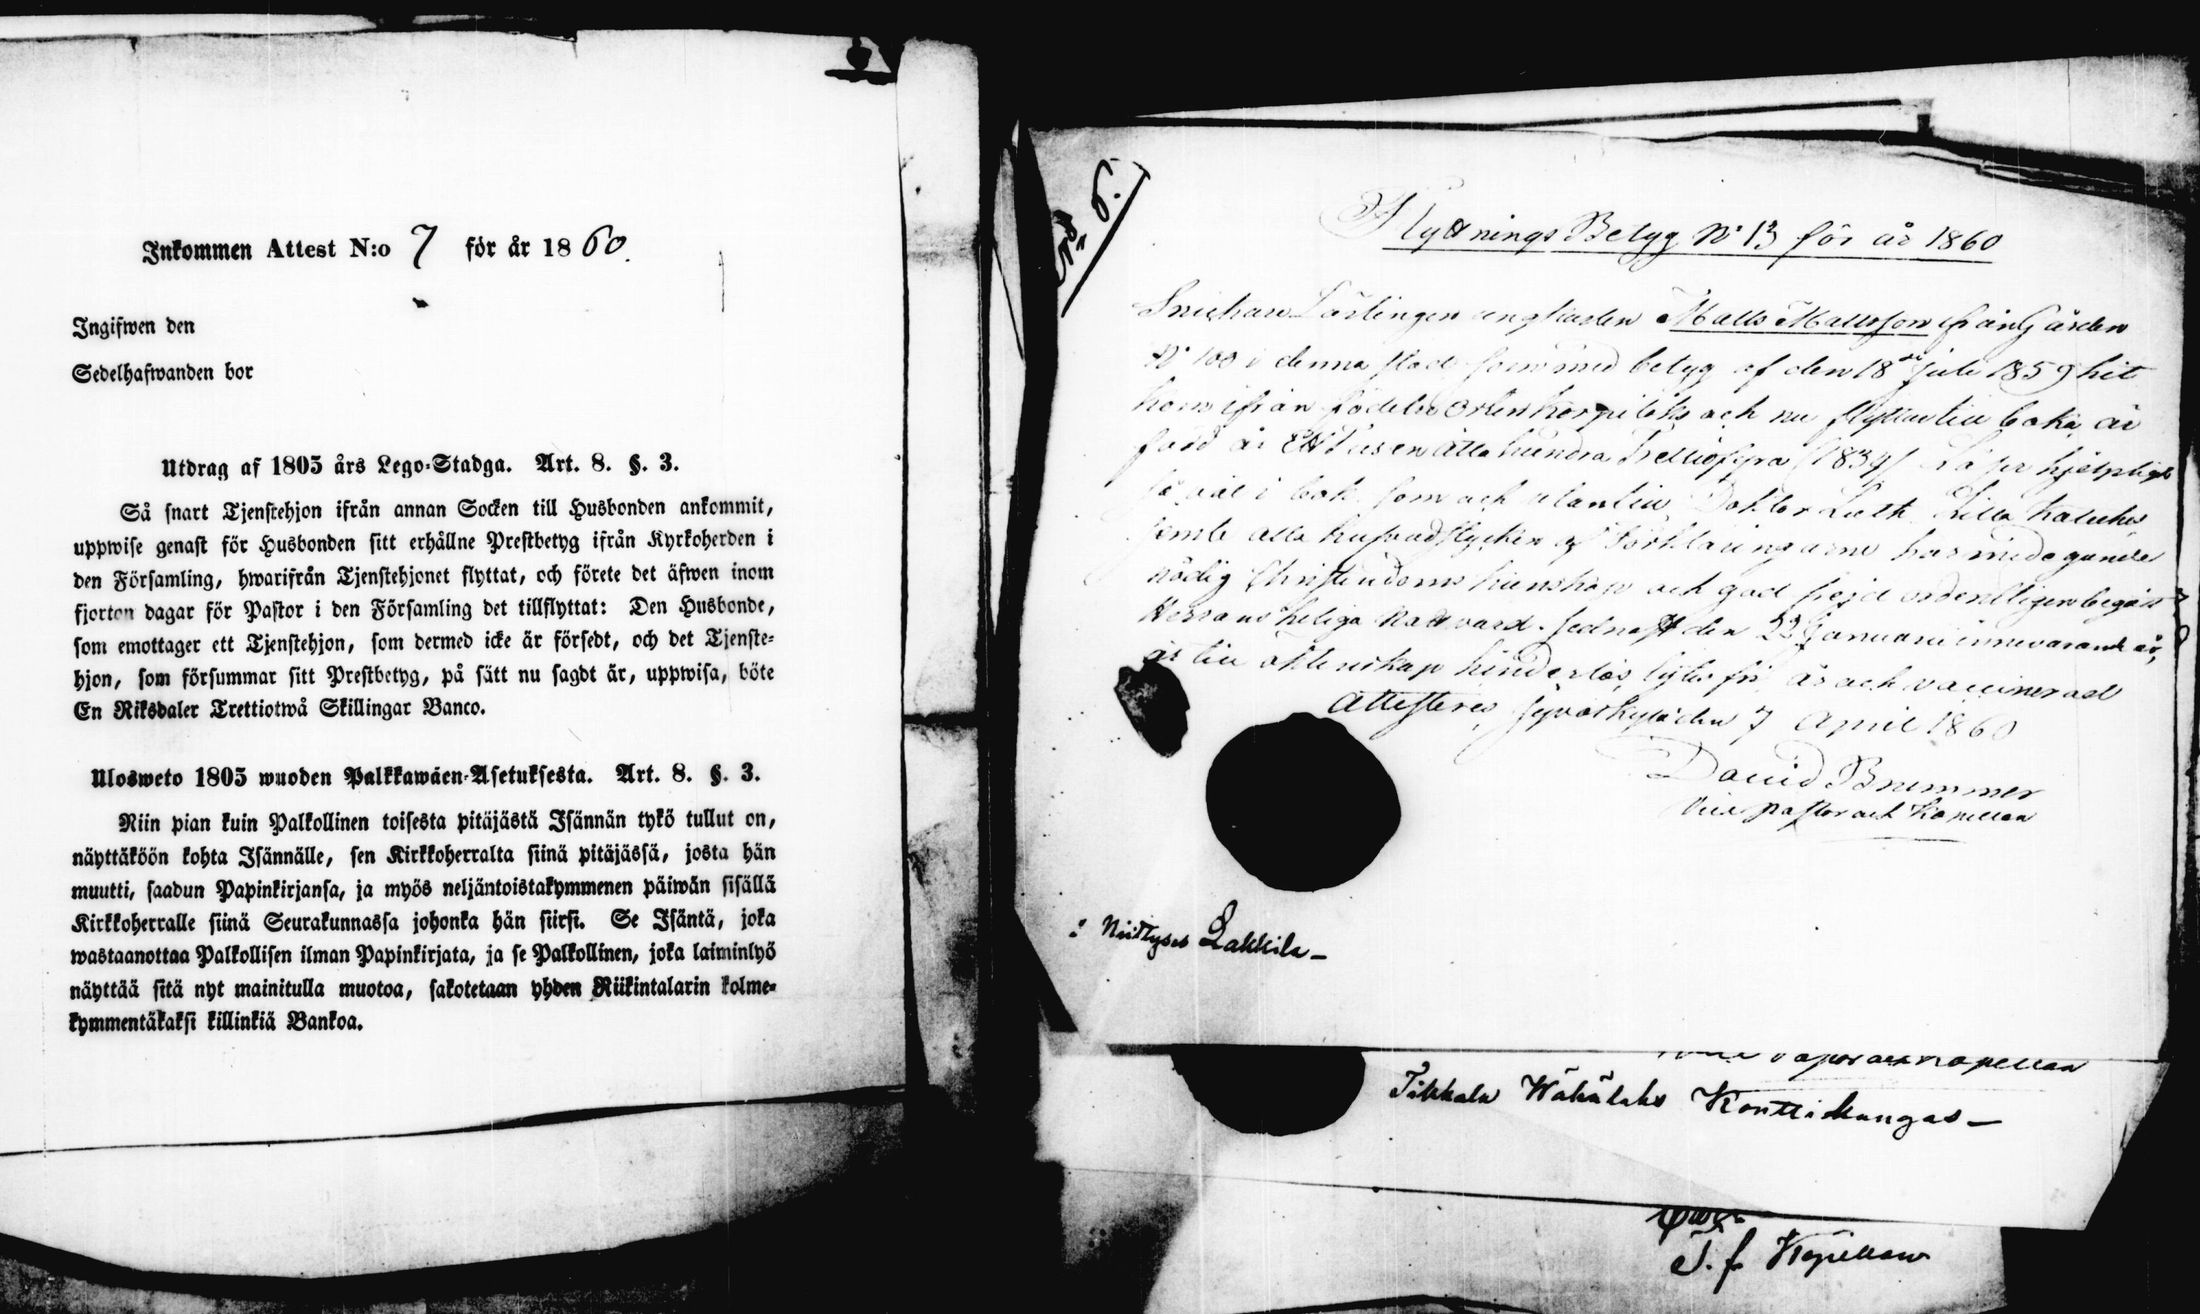 Inkommen Attest N:o 7 för år 1860.
Ingifwen den
Sedelhafwanden bor
Utdrag af 1805 års Lego-Stadga. Art. 8. §. 3.
Så snart Tjenstehjon ifrån annan Socken till Husbonden ankommit,
uppwise genast för Husbonden sitt erhållne Prestbetyg ifrån Kyrkoherden i
den Församling, hwarifrån Tjenstehjonet flyttat, och förete det äfwen inom
fjorton dagar för Pastor i den Församling det tillflyttat: Den Husbonde,
som emottager ett Tjenstehjon, som dermed icke är försedt, och det Tjenste-
hjon, som försummar sitt Prestbetyg, på sätt nu sagdt är, uppwisa, böte
En Riksdaler Trettiotwå Skillingar Banco.
Ulosweto 1805 wuoden Palkkawäen-Asetuksesta. Art. 8. §. 3.
Niin pian kuin Palkollinen toisesta pitäjästä Isännän tykö tullut on,
näyttäköön kohta Isännälle, sen Kirkkoherralta siinä pitäjässä, josta hän
muutti, saadun Papinkirjansa, ja myös neljäntoistakymmenen päiwän sisällä
Kirkkoherralle siinä Seurakunnassa johonka hän siirsi. Se Isäntä, joka
wastaanottaa Palkollisen ilman Papinkirjata, ja se Palkollinen, joka laiminlyö
näyttää sitä nyt mainitulla muotoa, sakotetaan yhden Riikintalarin kolme-
kymmentäkaksi killinkiä Bankoa.
No 6.
Flyttnings Betyg No 13 för år 1860
Snickare Lärlingen ynglingen Matts Mattsson ifrån Gården
No 100 i denna stad som med betyg af den 18de Juli 1859 hit
kom ifrån födelse Orten Korpilaks och nu flyttar till baka är
född år Ett Tusen Åtta hundra Trettiofyra (1834) Läser hjelpligt
så väl i bok som och utantill Doktor Luth Lilla Kateches
jemte alla hufvudstycken af Förklaringarne har nödgande
nödig Christendoms kunskap och god frejd ordentligen begått
Herrans heliga Nattvard sednast den 22 Januari innevarande år,
är till äktenskap hinderlös lytes fri är och vaccinerad
Attesteres, Jyväskylä den 7 April 1860
David Brummer
Vice pastor och Kapellan
: Niittyses Lakkila –
Kapellan
Tikkala Wähälaks Konttikangas –
T. f. Kapellan